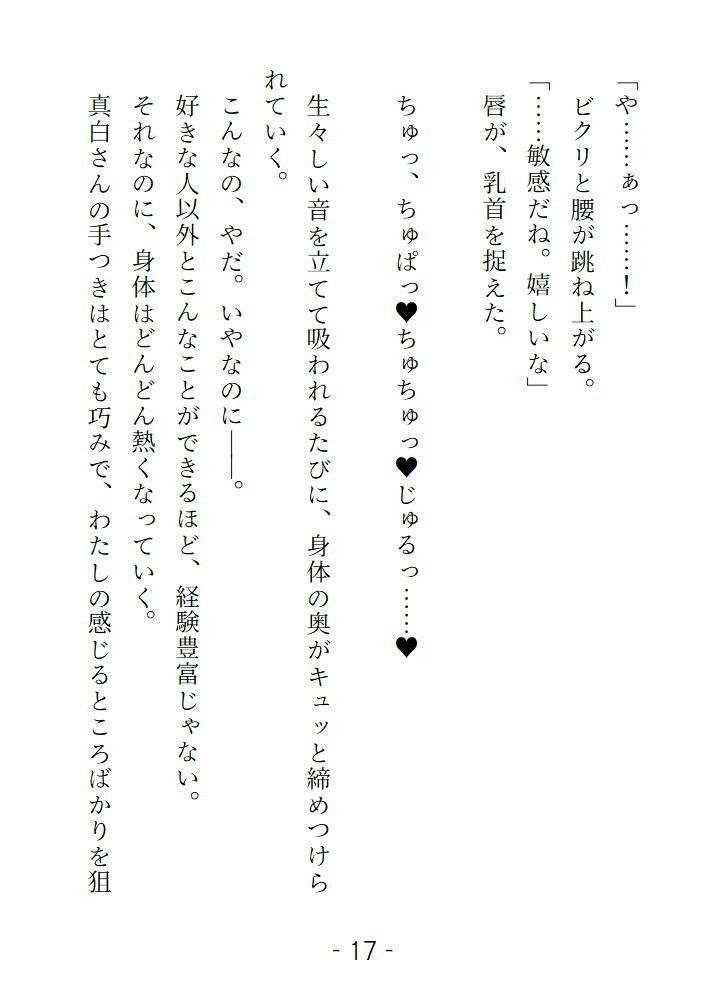 「や……ぁっ……！」
ビクリと腰が跳ね上がる。
「……敏感だね。嬉しいな」
唇が、乳首を捉えた。
ちゅっ、ちゅぱっ♥ちゅちゅっ♥じゅるっ……♥
生々しい音を立てて吸われるたびに、身体の奥がキュッと締めつけら
れていく。
こんなの、やだ。いやなのに――。
好きな人以外とこんなことができるほど、経験豊富じゃない。
それなのに、身体はどんどん熱くなっていく。
真白さんの手つきはとても巧みで、わたしの感じるところばかりを狙
- 17 -